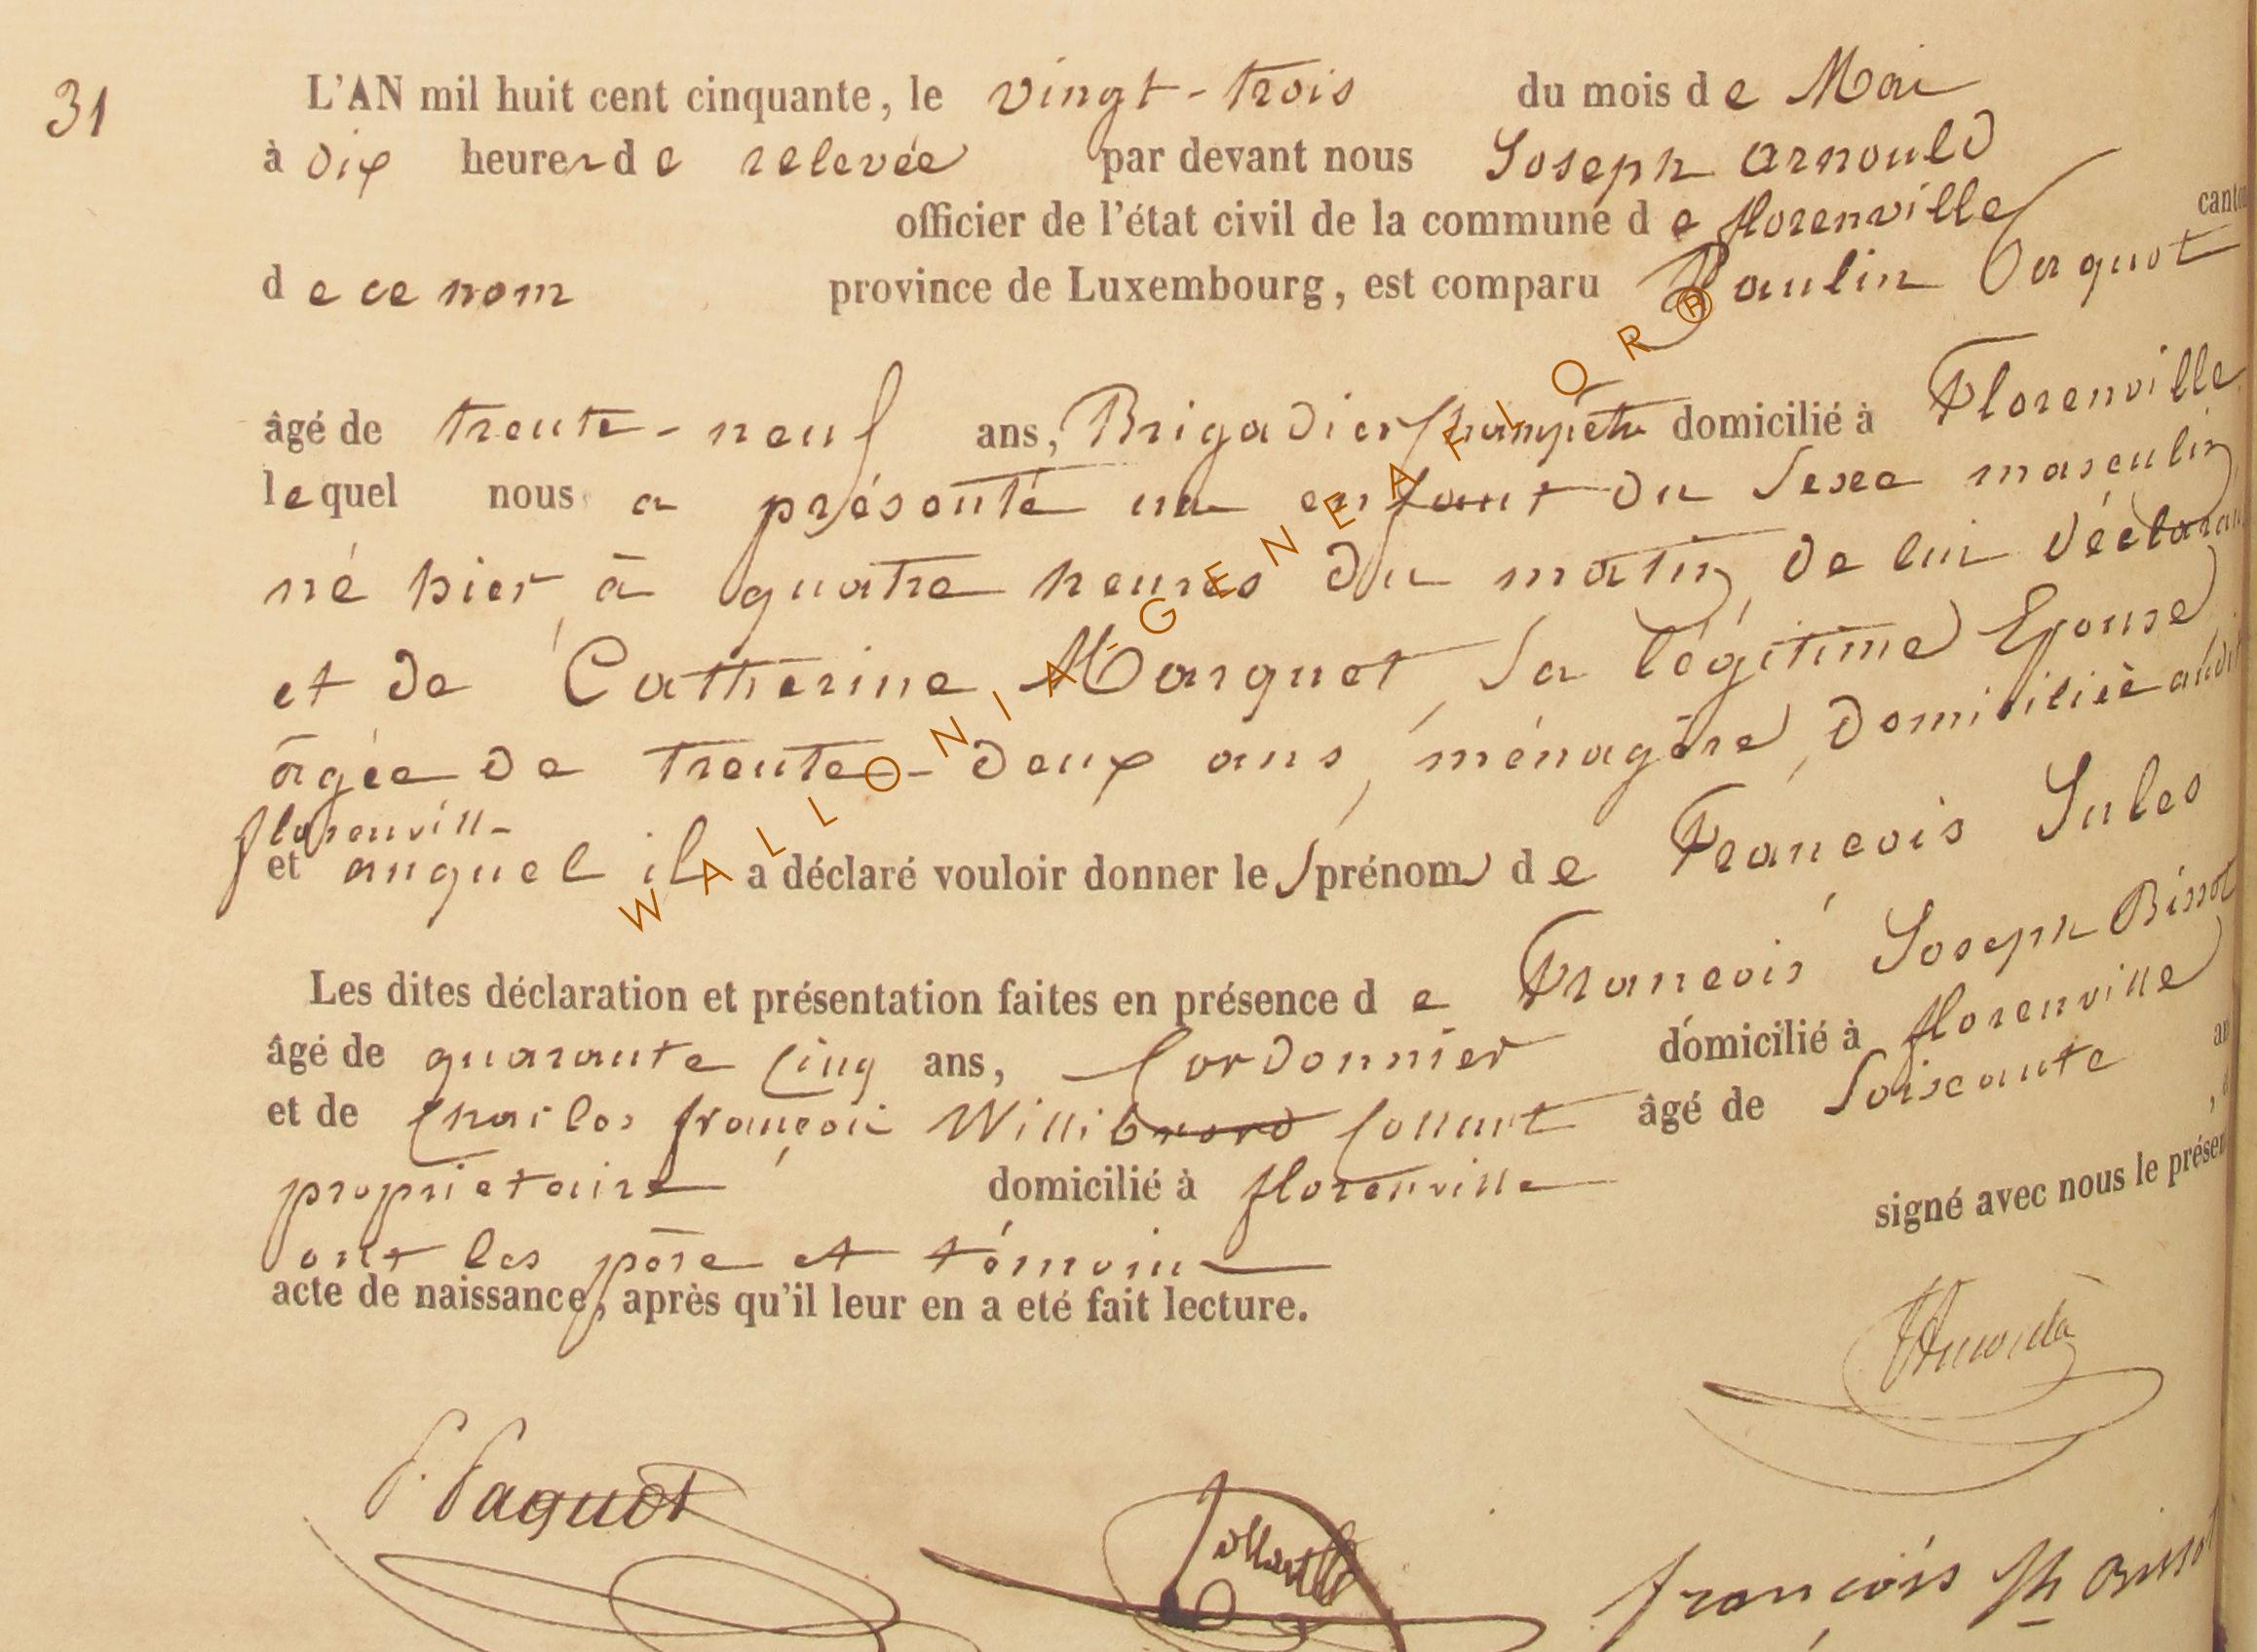 31
L'AN mil huit cent cinquante, le vingt-trois du mois de Mai
à dix heures de relevée par devant nous Joseph Arnould
officier de l'état civil de la commune de florenville cant
de ce nom province de Luxembourg, est comparu Paulin Paquot
âgé de trente-neuf ans, Brigadier domicilié à Florenville
lequel nous a présenté un enfant du sexe masculin
né hier à quatre heures du matin, de lui déclaran
et de Catherine Marquet, sa légitime Epouse
âgée de trente-deux ans, ménagère, domiciliée audit
florenville
et auquel il a déclaré vouloir donner les prénoms de François Jules
Les dites déclaration et présentation faites en présence de François Joseph
âgé de quarante cinq ans, Cordonnier domicilié à florenville
et de Charles françois Willibrord Collart âgé de soixante an
propriétaire domicilié à florenville
signé avec nous le présen
ont les père et témoins
acte de naissance, après qu'il leur en a eté fait lecture.
P. Paquot
Collart
françois Jh
WALLONIA-GENEAFLOR®